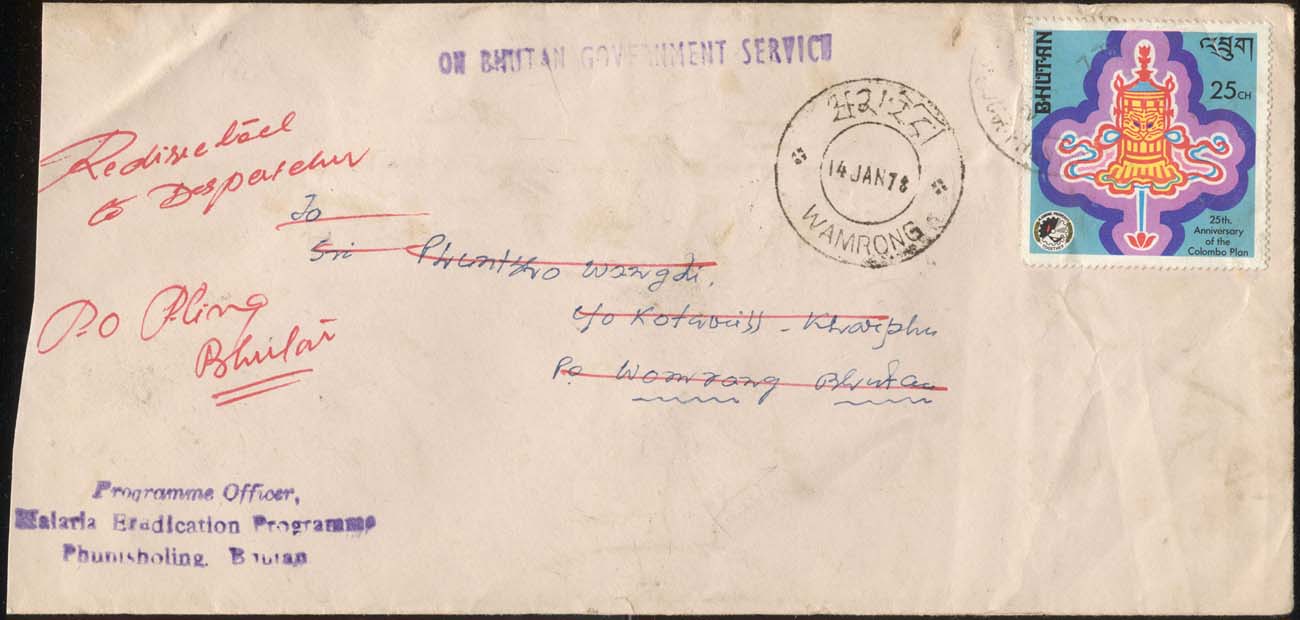 ON BHUTAN GOVERNMENT SERVICE
BHUTAN
འབྲུག
25CH
25th.
Anniversary
of the
Colombo Plan
14 JAN 78
WAMRONG
Redirected
to Despatcher
P.O P.ling
Bhutan
To
Sri Phuntsho Wangdi,
c/o
P.o Womrong Bhutan
Programme Officer,
Malaria Eradication Programme
Phuntsholing. Bhutan